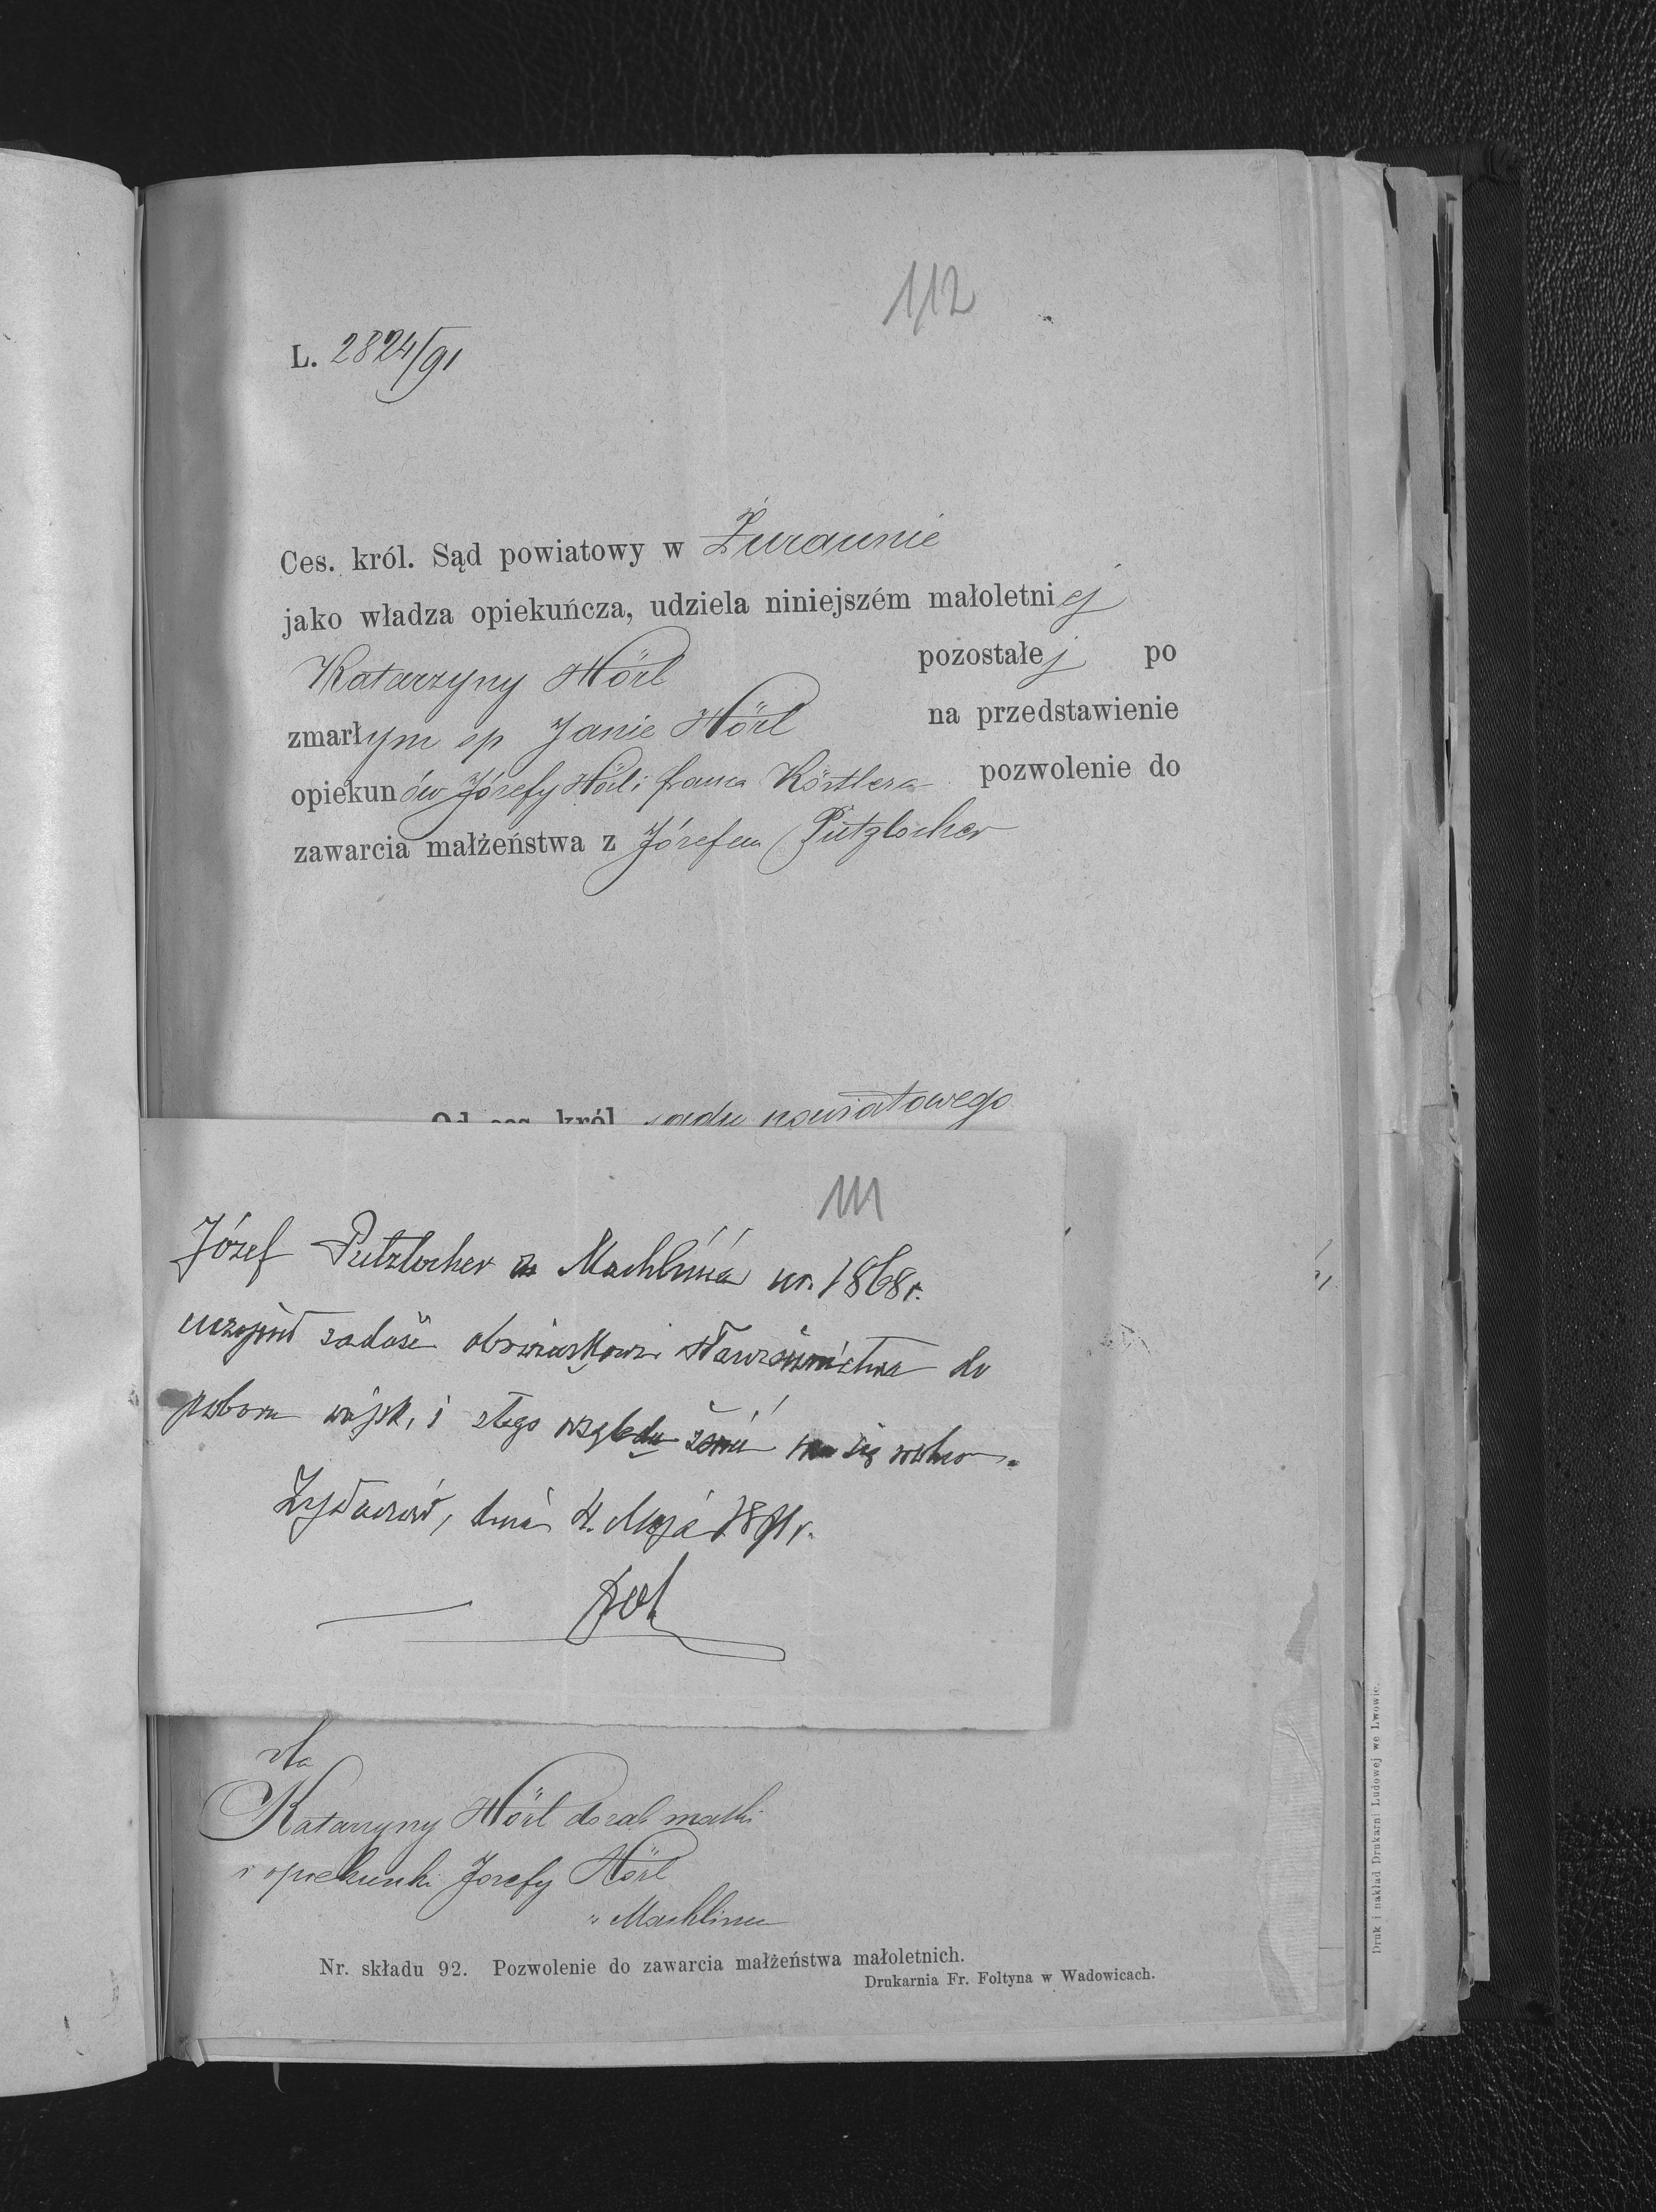 112
L. 2824/91
Ces. król. Sąd powiatowy w Żurawnie
jako władza opiekuńcza, udziela niniejszém małoletniej
Katarzyny Hörl pozostałej po
zmarłym sp Janie Hörl na przedstawienie
opiekunów Józefy Hörl i Köstlera pozwolenie do
zawarcia małżeństwa z Józefem Pützlocher
Od ces. król. sądu powiatowego
111
Józef Putzlocher z Machlińca ur. 1868 r.
uczynił zadość obowiązkowi stawiennictwa do
poboru wojsk. i z tego względu żenić się wolno.
Żydaczów, dnia 4. Maja 1891 r.
dla
Katarzyny Hörl do rąk matki
i opiekunki Jozefy Hörl
w Machlincu
Nr. składu 92. Pozwolenie do zawarcia małżeństwa małoletnich.
Drukarnia Fr. Foltyna w Wadowicach.
Druk i nakład Drukarni Ludowej we Lwowie.